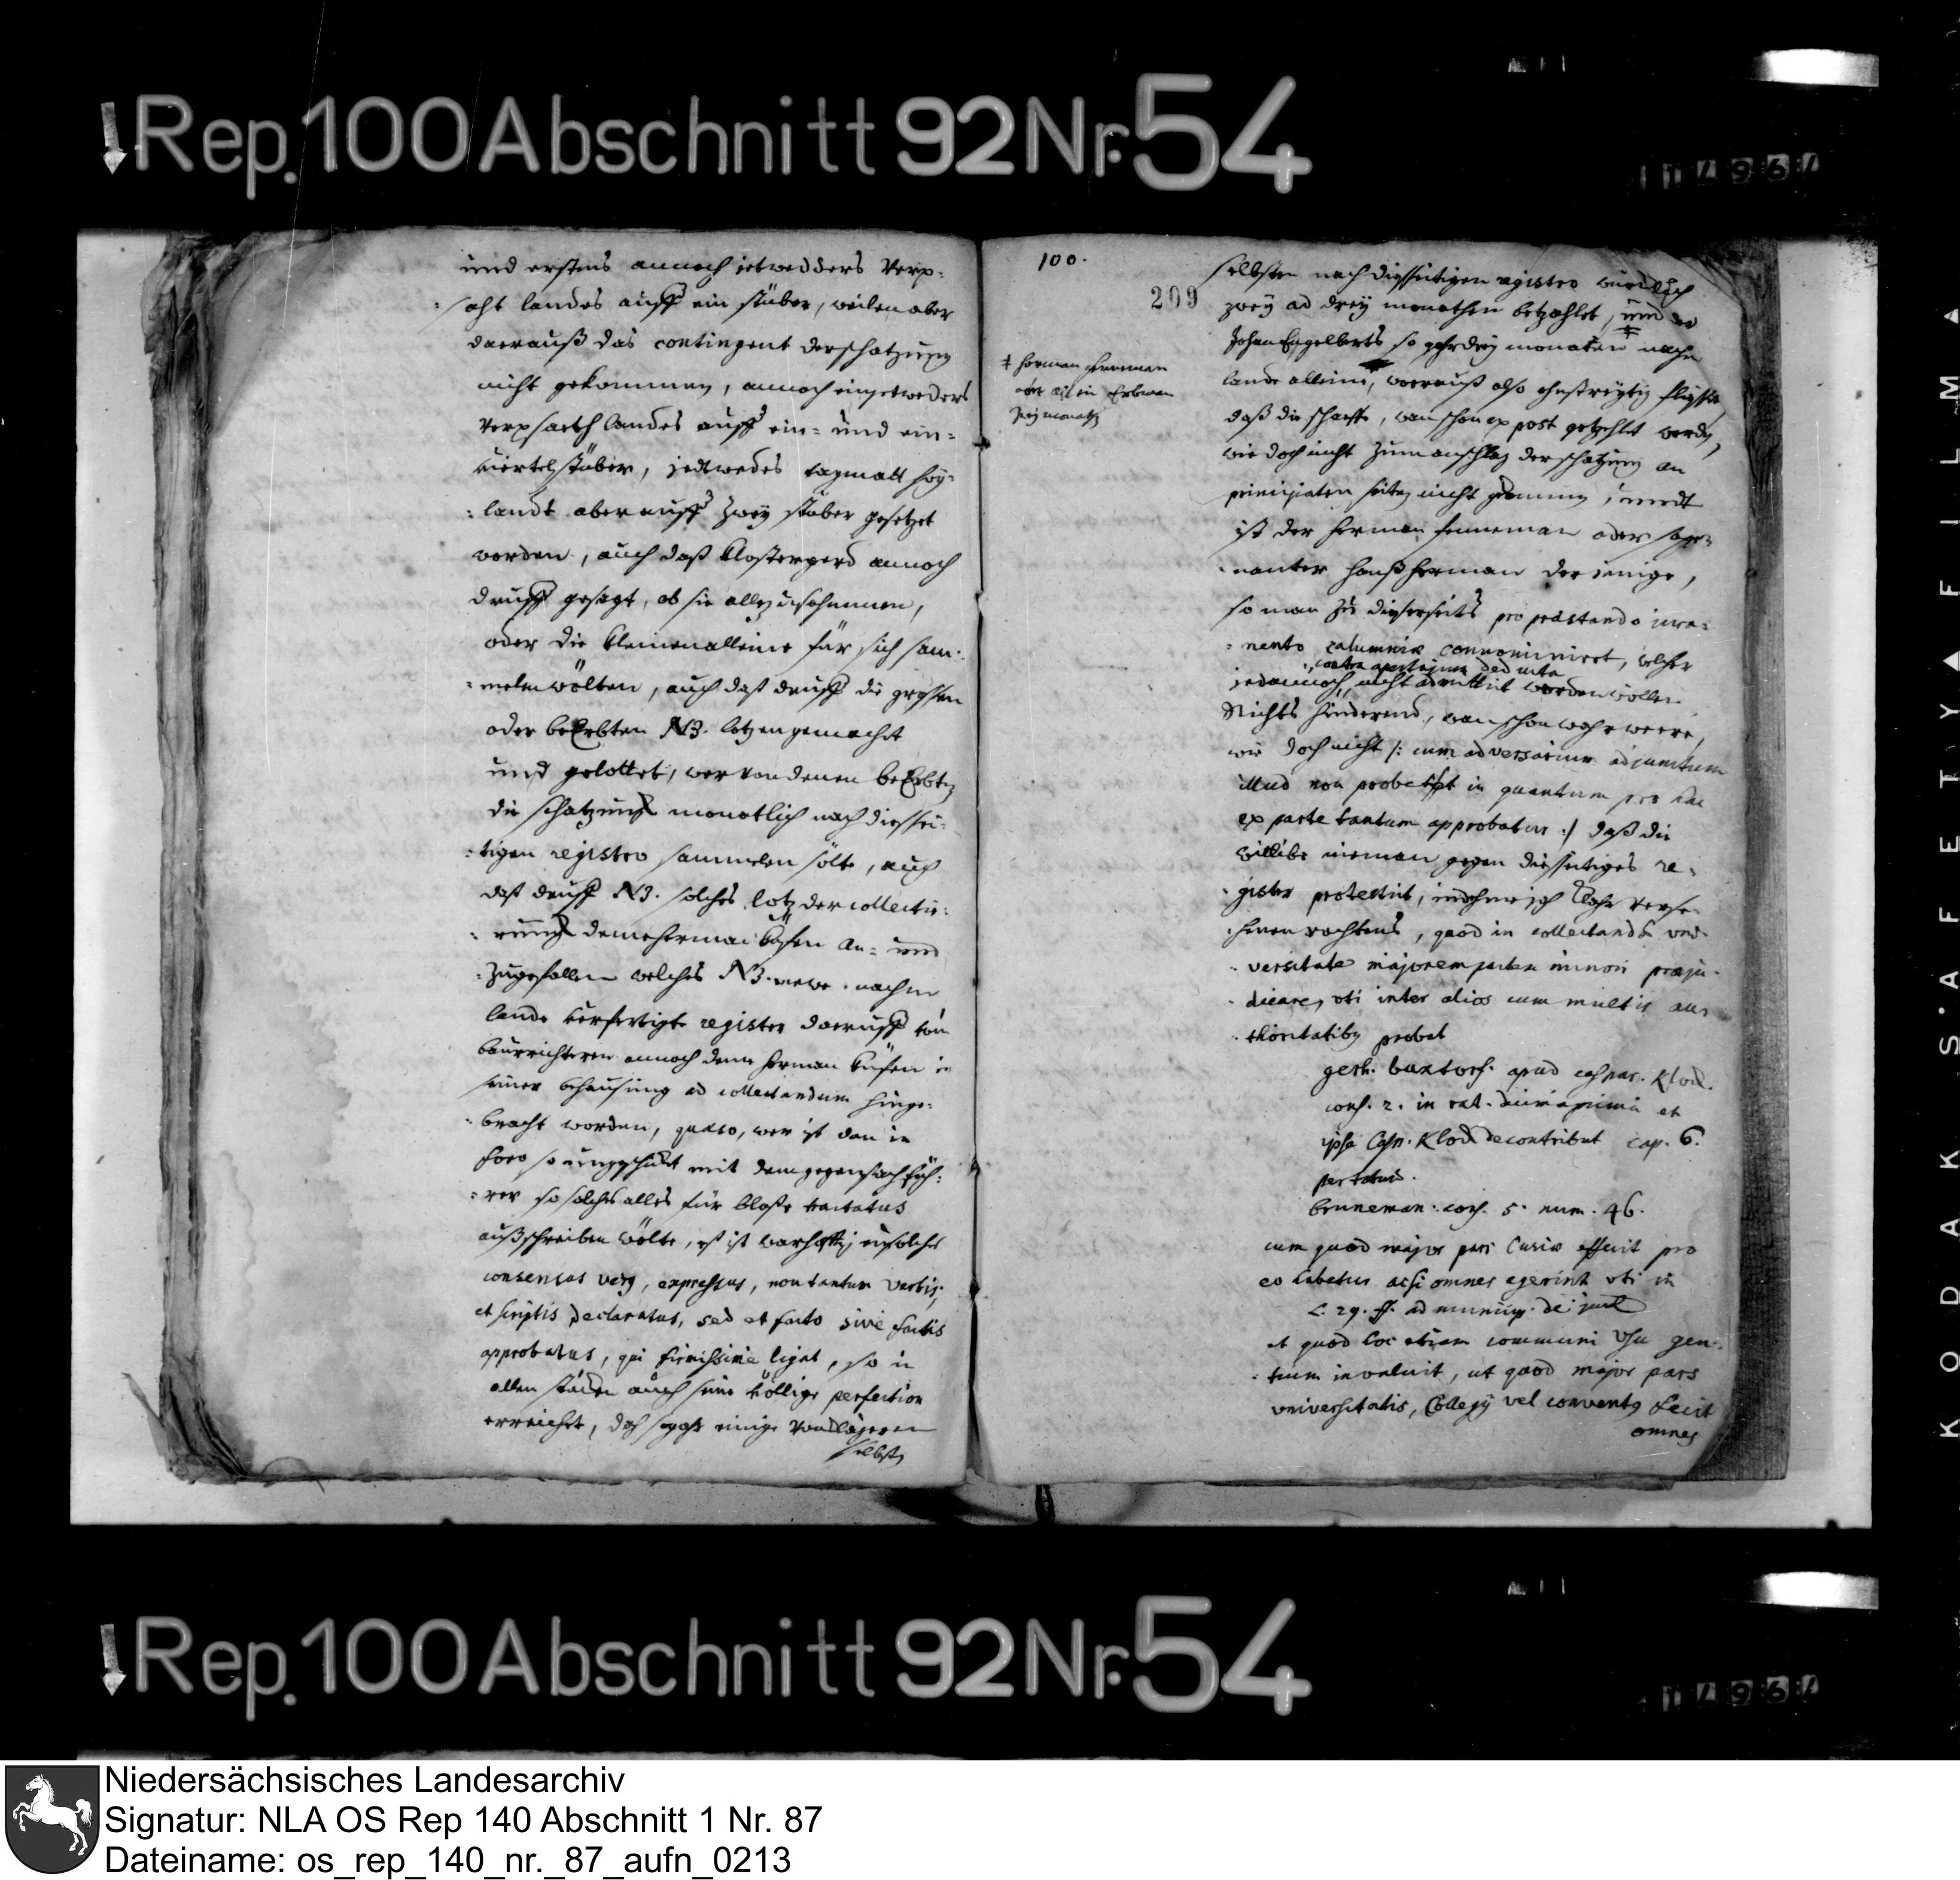 Rep. 100 Abschnitt 92 Nr. 54
und erstens annoch jetwedders Verp-
saht landes auff ein stüber, weilen aber
darauß das contingent der schatzung
nicht gekommen, annoch ein jetweders
Verpsaeth landes auff ein- und ein-
viertel stüber, jedwedes tagmatt hoy-
landt aber auff zwey stüber gesetzet
worden, auch daß Clostergerd annoch
druff gesagt, ob sie alle zusahmmen,
oder die kleinen alleine für sich sam-
melen wölten, auch daß druff die grossen
oder beErbten NB. lotzen gemacht
und gelottet, wer von denen beErbten
die schatzung monatlich nach diessei-
tigen registro sammelen sölte, auch
daß druff NB. solches lotz der collecti-
rung deme Herman an- und
zugefallen welches NB. newe nachm
lande verfertigte register daruff von
baurrichteren annoch dem Herman in
seiner behausung ad collectandum hinge-
bracht worden, quaeso, wer ist dan in
foro so ungeschickt mit dem gegensachfüh-
rer so solches alles für blosse tractatus
außschreiben wölte, es ist warhafftig ein solcher
consensus verus, expressus, non tantum verbis,
et scriptis declaratus, sed et facto sive factis
approbatus, qui firmissime ligat, so in
allen stücken auch seine völlige perfection
erreichet, daß sogahr einige von klägeren
selbsten
100.
209
‡ Herman Henneman
monath
selbsten nach diesseitigen registro würcklich
zwey ad drey monathen betzahlet, und der
Johan Engelberts so gahr drey monaten nachm
lande alleine, worauß also ohnstreytig fliesset,
daß die schaeffe, wan schon ex post getzehlet worden,
wie doch nicht zum anschlag der schatzung an
principalen seiten nicht genommen, sonst
ist der Herman Henneman oder soge-
nanter Hanß Herman der jenige,
so man zu dieserseits pro praestando jura-
mento calumniae connominirt, welcher
contra apertissima
jedannoch, nicht admittirt werden wollen
Nichts hinderend, wan schon wahr were,
wie doch nicht /: cum adversarium adjunctum
illud non probet in quantum pro hac
ex parte tantum approbatur :/ daß die
nieman gegen diesseitiges re-
gister protestirt, indehme ja
rechtens, quod in collectanda uni-
versitate majorem partem minori praeju-
dicare, uti inter alios cum multis au-
thoritatibus probat
gerh. buxtorf. apud caspar. Klock.
cons. 2. in rat. et
ipse Casp. Klock de contribut cap. 6.
per totum.
Bruneman. cons. 5. num. 46.
cum quod major pars Curiae effecit pro
eo habetur acsi omnes egerint uti in
L. 19. ff. ad municip. de
et quod hoc etiam communi usu gen-
tium invaluit, ut quod major pars
universitatis, Collegij vel conventus fecit
omnes
Rep. 100 Abschnitt 92 Nr. 54
KODAK SAFETY FILM
Niedersächsisches Landesarchiv
Signatur: NLA OS Rep 140 Abschnitt 1 Nr. 87
Dateiname: os_rep_140_nr._87_aufn_0213